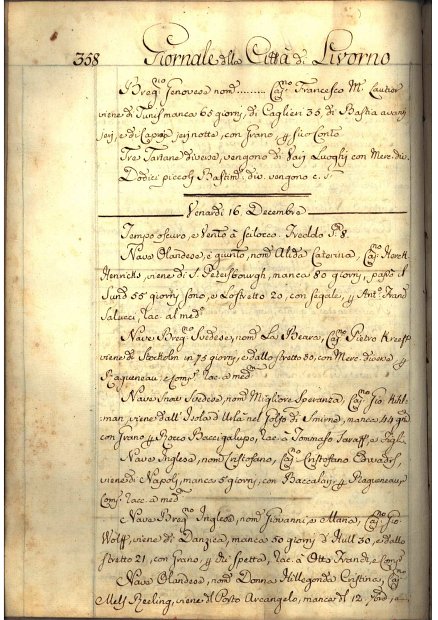 358 Giornale della Città di Livorno
Brig.no Genovese nom.° ......... Cap.no Francesco M. Lautier
viene di Tunis manca 65 giorni, di Caglieri 35, di Bastia avanti
jeri, e di Capraja jeri notte, con Grano, p suo Conto
Tre Tartane diverse, vengono di Varj Luoghi con Merc. div.
Dodici piccoli Bastim.ti div. vengono c. s.
Venardì 16. Decembre
Tempo oscuro, e Vento à scilocco. Freddo 8.
Nave Olandese, è giunto, nom.° Alida Caterina, Cap.no
Henricks, viene di S. Petersbourgh, manca 80 giorni, passò il
Sund 55 giorni sono, e Lo stretto 20, con segale, p Ant.° Franc.
Salucci, rac. al med.°
Nave Brig.no Svedese, nom.° La Beata, Cap.no Pietro
viene di Stockolm in 75 giorni, e dallo stretto 30, con Merc. diverse p
Ragueneau, e Comp. rac. a med.
Nave Snau Svedese, nom.° Migliore Speranza, Cap.no Gio. Kihl-
man, viene dall' Isola d'Urla nel Golfo di Smirne, manca 44 gni
con Grano p Rocco Baccigalupo, rac. à Tommaso e Figli.
Nave Inglese, nom.° Cristofano, Cap.no Cristofano Edwards,
viene di Napoli, manca 5 giorni, con Baccalari, p Ragueneau, e
Comp. racc. a med.
Nave Brig.no Inglese, nom.° Giovanni, e Maria, Cap.no Gio.
Wolff, viene di Danzica, manca 50 giorni d'Hull 30, e dallo
stretto 21, con Grano, p chi spetta, rac. à Otto Franck, e Comp.
Nave Olandese, nom.° Donna Hillegonda Cristina, Cap.no
Mels Reeling, viene del Porto Arcangelo, manca del 12.